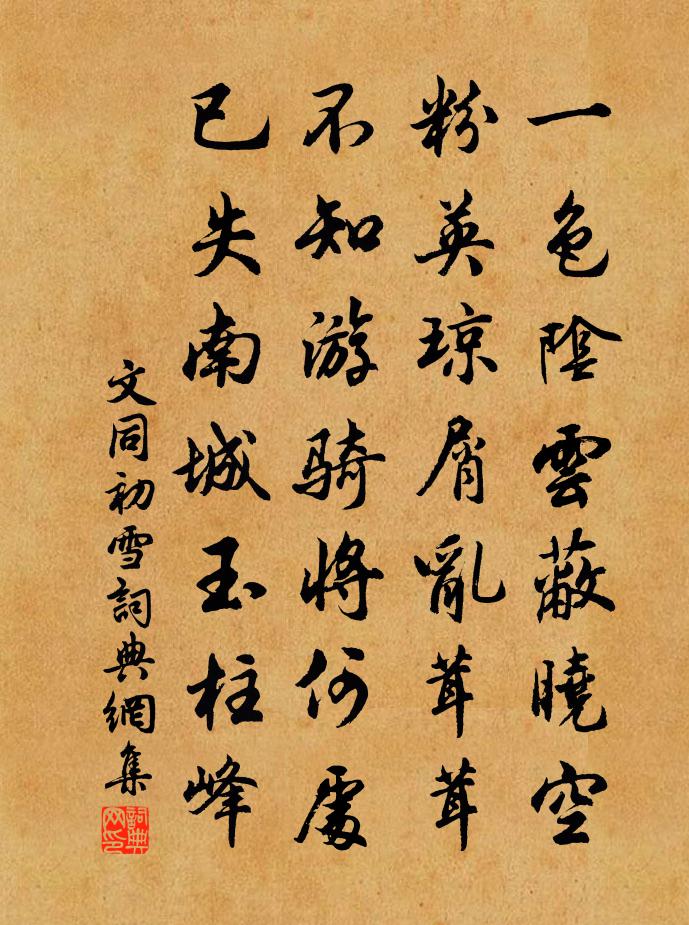 一色陰雲蔽曉空
粉英瓊屑亂茸茸
不知游騎將何處
已失南城玉柱峰
文同初雪詞典網集
詞典网印